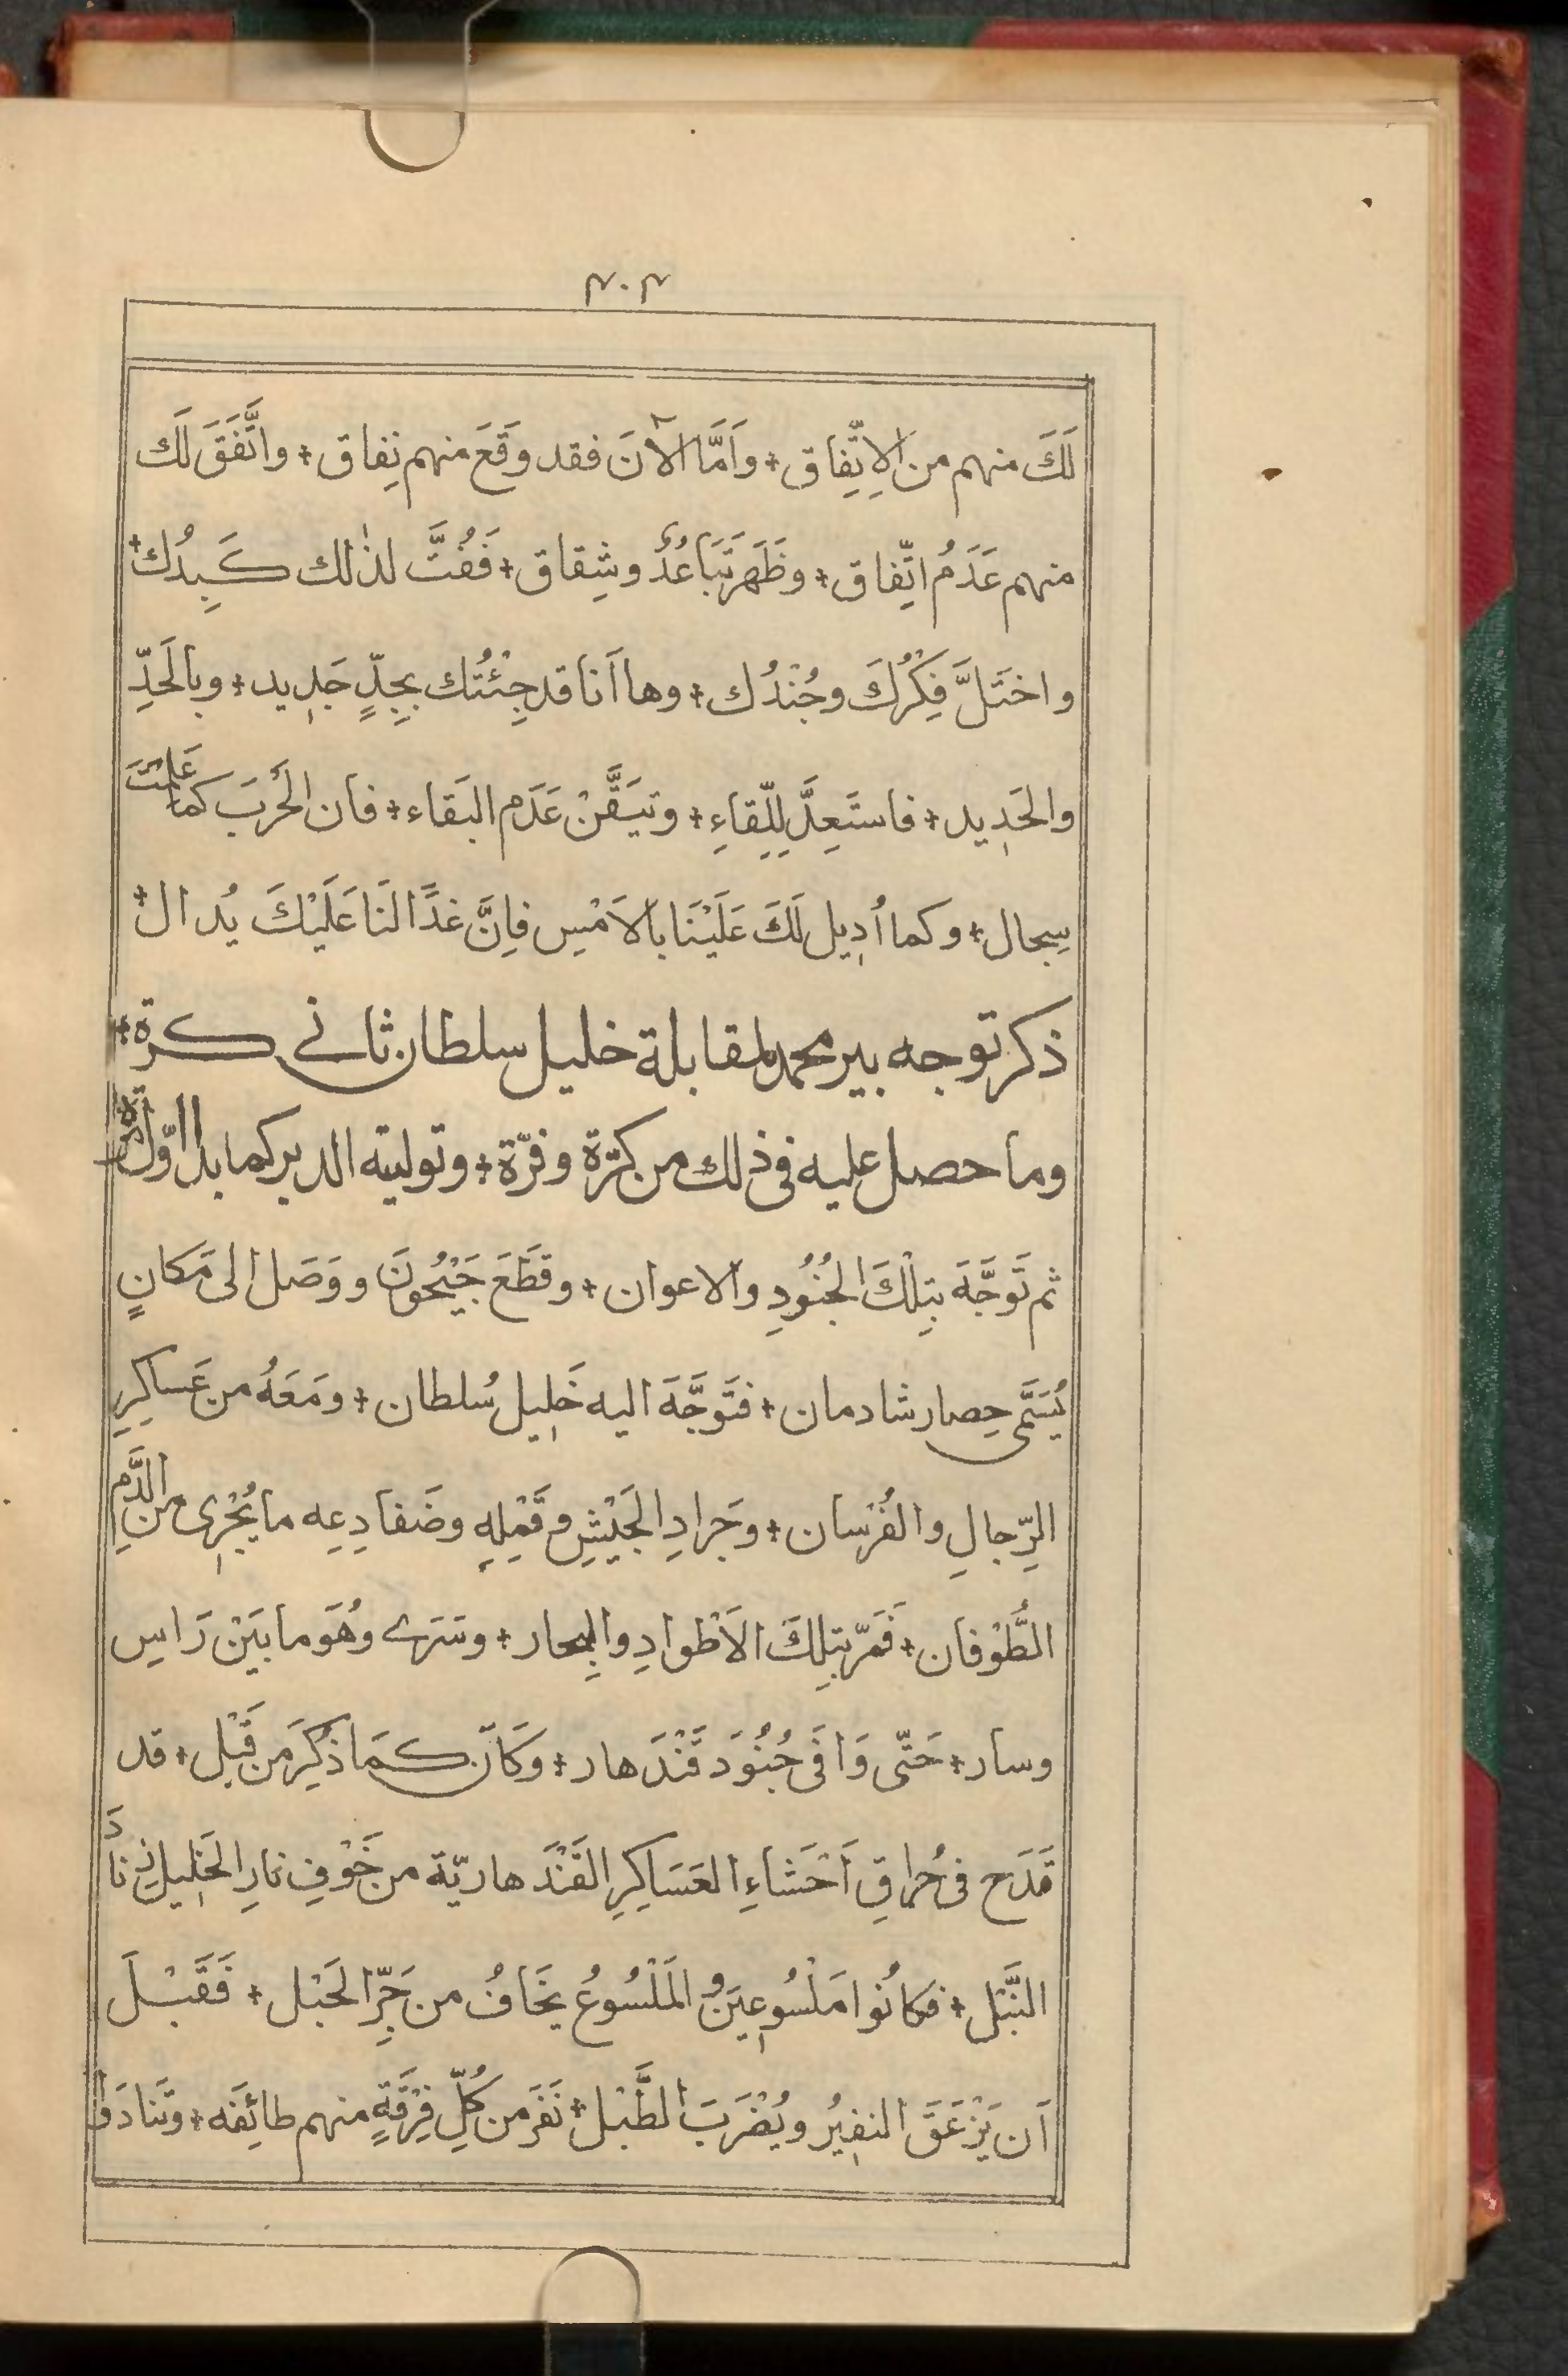 ٣٠٣
لَكَ منهم من الاِتِّفاق + واَمَّا الآنَ فقد وَقَعَ منهم نِفاق + واتَّفَقَ لَكَ
منهم عَدَمُ اتِّفاق + وظَهَر تَبَاعُدٌ وشِقاق + فَفُتَّ لذٰلك كَبِدُك +
واختَلَّ فِكْرُكَ وجُنْدُك + وها اَنا قد جِئْتُك بِجِدٍّ جَدِيد + وبالحَدِّ
والحَدِيد + فاستَعِدَّ لِلِّقاءِ + وتيَقَّنْ عَدَم البَقاء + فان الحَربَ كما عَلِمْتَ
سِجال + وكما اُدِيل لَكَ عَلَيْنَا بالاَمْسِ فاِنَّ غدًا لنَا عَلَيْكَ يُدال +
ذكر توجه بير محمد لمقابلة خليل سلطان ثانے كرة +
وما حصل عليه فى ذلك من كَرّة وفرّة + وتوليته الدبر كما بدا اوّل مرّة
ثم تَوَجَّهَ بتِلْكَ الجُنُودِ والاعوان + وقَطَعَ جَيْحُونَ ووَصَل الى مَكانٍ
يُسَمَّى حِصار شادمان + فتَوَجَّهَ اليه خَلِيل سُلطان + ومَعَهُ من عَساكِرِ
الرِّجالِ والفُرْسان + وجَرادِ الجَيْشِ وقَمْلِهِ وضَفادِعِه ما يُجْرِى من الدَّمِ
الطُّوْفان + فَمَرّ بتِلكَ الاَطْوادِ والبِحار + وسَرے وهُوَ ما بَيْن رَاسٍ
وسار + حَتّى وَافَى جُنُوَد قَنْدَهار + وكَانَ كمَا ذُكِرَ من قَبْل + قد
قَدَح فى حُراقِ اَحْشاءِ العَسَاكِرِ القَنْدَهاريّة من خَوْفِ نارِ الخَلِيلِ زِنادَ
النَّبْل + فكانُوا مَلْسُوعِيَن والمَلْسُوعُ يخَافُ من جَرِّ الحَبْل + فَقَبْلَ
اَن يَزْعَقَ النفِيُر ويُضْرَبَ الطَّبْل + نَفَرَ من كُلِّ فِرْقَةٍ منهم طائِفَه + وتَنادَوا